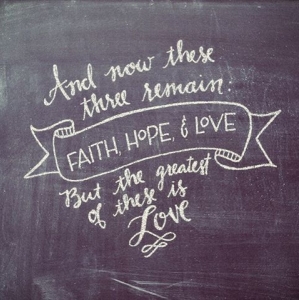 And now these
three remain:
FAITH, HOPE, & LOVE
But the greatest
of these is
Love